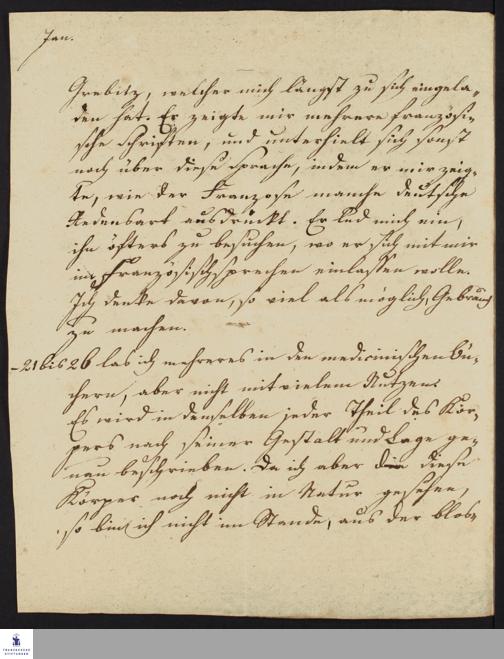 Jan.
Grebitz, welcher mich längst zu sich eingela-
den hat. Er zeigte mir mehrere französi-
sche Schriften, und unterhielt sich sonst
noch über diese Sprache, indem er mir zeig-
te, wie der Franzose manche deutsche
Redensart ausdrückt. Er lud mich ein,
ihn öfters zu besuchen, wo er sich mit mir
ins Französischsprechen einlassen wolle.
Ich denke davon, so viel als möglich, Gebrauch
zu machen.
-21 bis 26 las ich mehreres in den medicinischen Bü-
chern, aber nicht mit vielem Nutzen.
Es wird in denselben jeder Theil des Kör-
pers nach seiner Gestalt und Lage ge-
nau beschrieben. Da ich aber diese
Körper noch nicht in Natur gesehen,
so bin ich nicht im Stande, aus der blos-
FRANCKESCHE
STIFTUNGEN